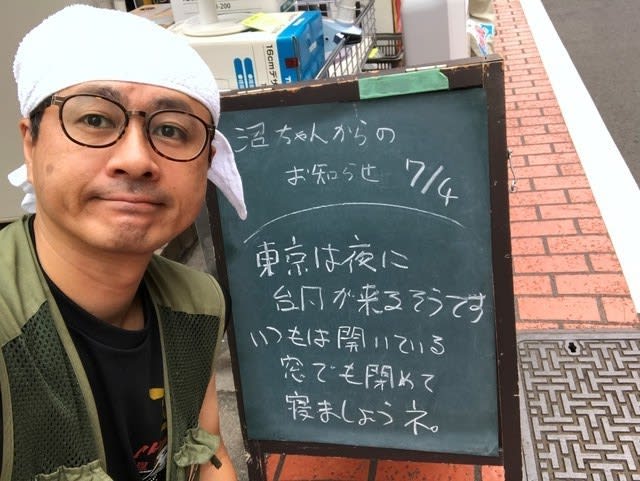 -200
16cmデザ
沼ちゃんからの
お知らせ 7/4
東京は夜に
台风が来るそうです
いつもは開いている
窓でも閉めて
寝ましょうネ。